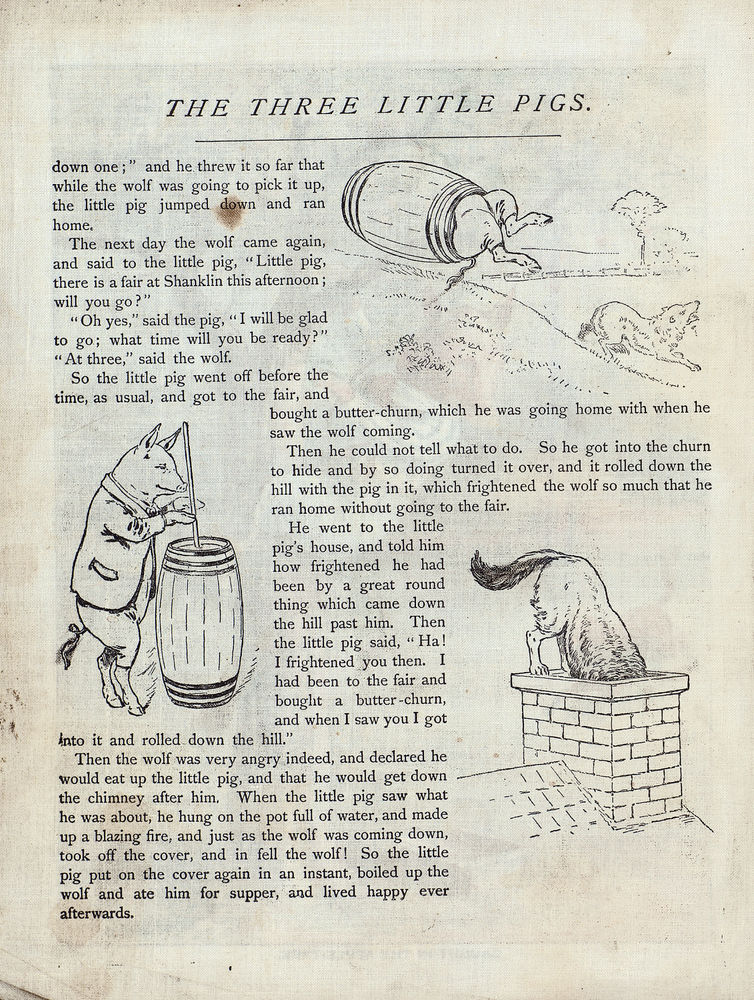 THE THREE LITTLE PIGS.
down one;" and he threw it so far that
while the wolf was going to pick it up,
the little pig jumped down and ran
home.
The next day the wolf came again,
and said to the little pig, "Little pig,
there is a fair at Shanklin this afternoon;
will you go?"
"Oh yes," said the pig, "I will be glad
to go; what time will you be ready?"
"At three," said the wolf.
So the little pig went off before the
time, as usual, and got to the fair, and
bought a butter-churn, which he was going home with when he
saw the wolf coming.
Then he could not tell what to do. So he got into the churn
to hide and by so doing turned it over, and it rolled down the
hill with the pig in it, which frightened the wolf so much that he
ran home without going to the fair.
He went to the little
pig's house, and told him
how frightened he had
been by a great round
thing which came down
the hill past him. Then
the little pig said, "Ha!
I frightened you then. I
had been to the fair and
bought a butter-churn,
and when I saw you I got
into it and rolled down the hill."
Then the wolf was very angry indeed, and declared he
would eat up the little pig, and that he would get down
the chimney after him. When the little pig saw what
he was about, he hung on the pot full of water, and made
up a blazing fire, and just as the wolf was coming down,
took off the cover, and in fell the wolf! So the little
pig put on the cover again in an instant, boiled up the
wolf and ate him for supper, and lived happy ever
afterwards.